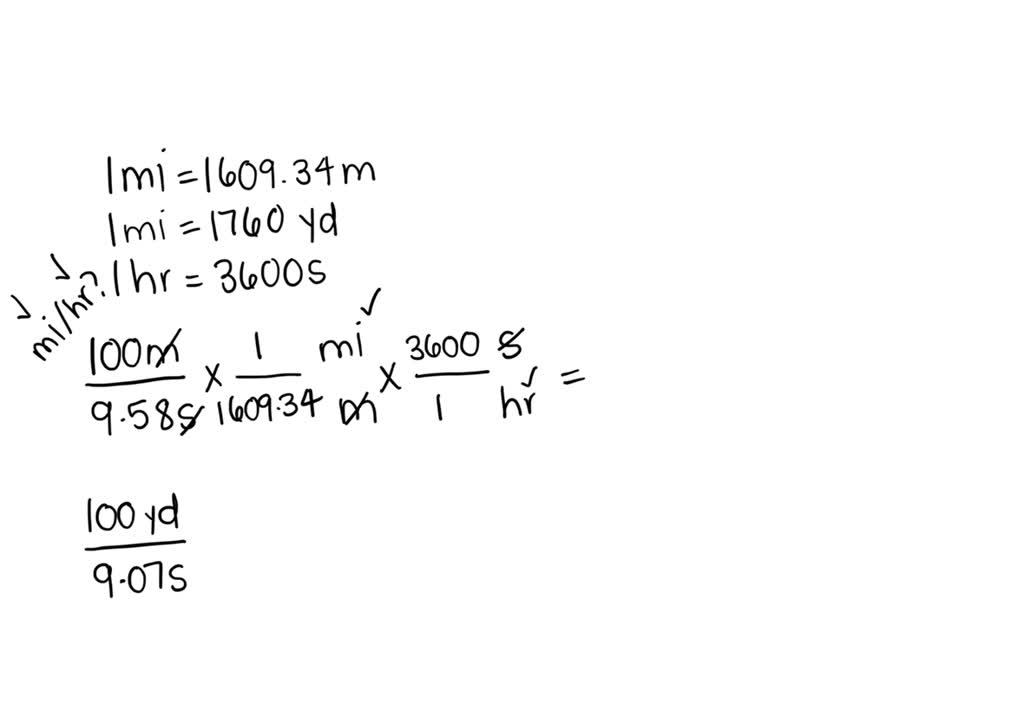 1 mi = 1609.34 m
1 mi = 1760 yd
mi/hr? 1 hr = 3600 s
100 m / 9.58 s × 1 mi / 1609.34 m × 3600 s / 1 hr =
100 yd / 9.07 s